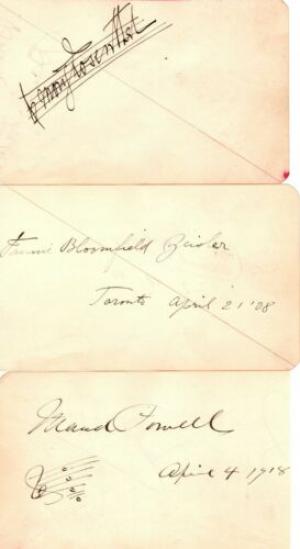 Moriz Rosenthal
Fannie Bloomfield Zeisler
Toronto April 21 '08
Maud Powell
April 4 1918